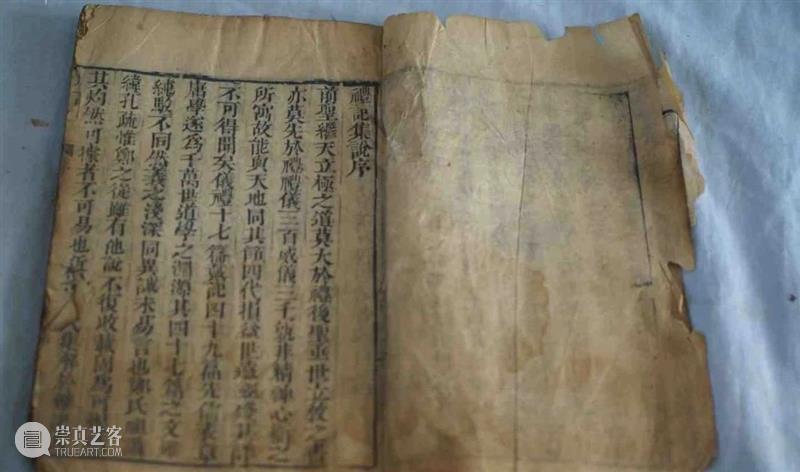 禮記集說序
前聖繼天立極之道莫大於禮後聖垂世立教之書
亦莫先於禮禮儀三百威儀三千孰非精神心術之
所寓故能與天地同其節四代損益世遠經殘其
不可得聞矣儀禮十七篇戴記四十九篇先儒表章
庸學遂爲千萬世道學之淵源其四十七篇之文
純駁不同然義之淺深同異誠未易言也鄭氏祖
緯孔疏惟鄭之從雖有他說不復收載固爲可
其灼然可據者不可易也近世 氏集解於
崇真艺客
WWW.TRUEART.COM